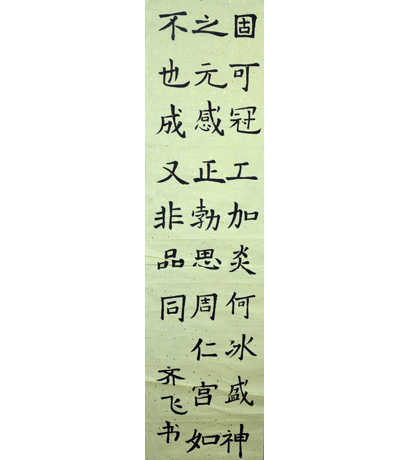 固可冠工加炎何冰盛神
之元感正勃思周仁宫如
不也成又非品同
齐飞书